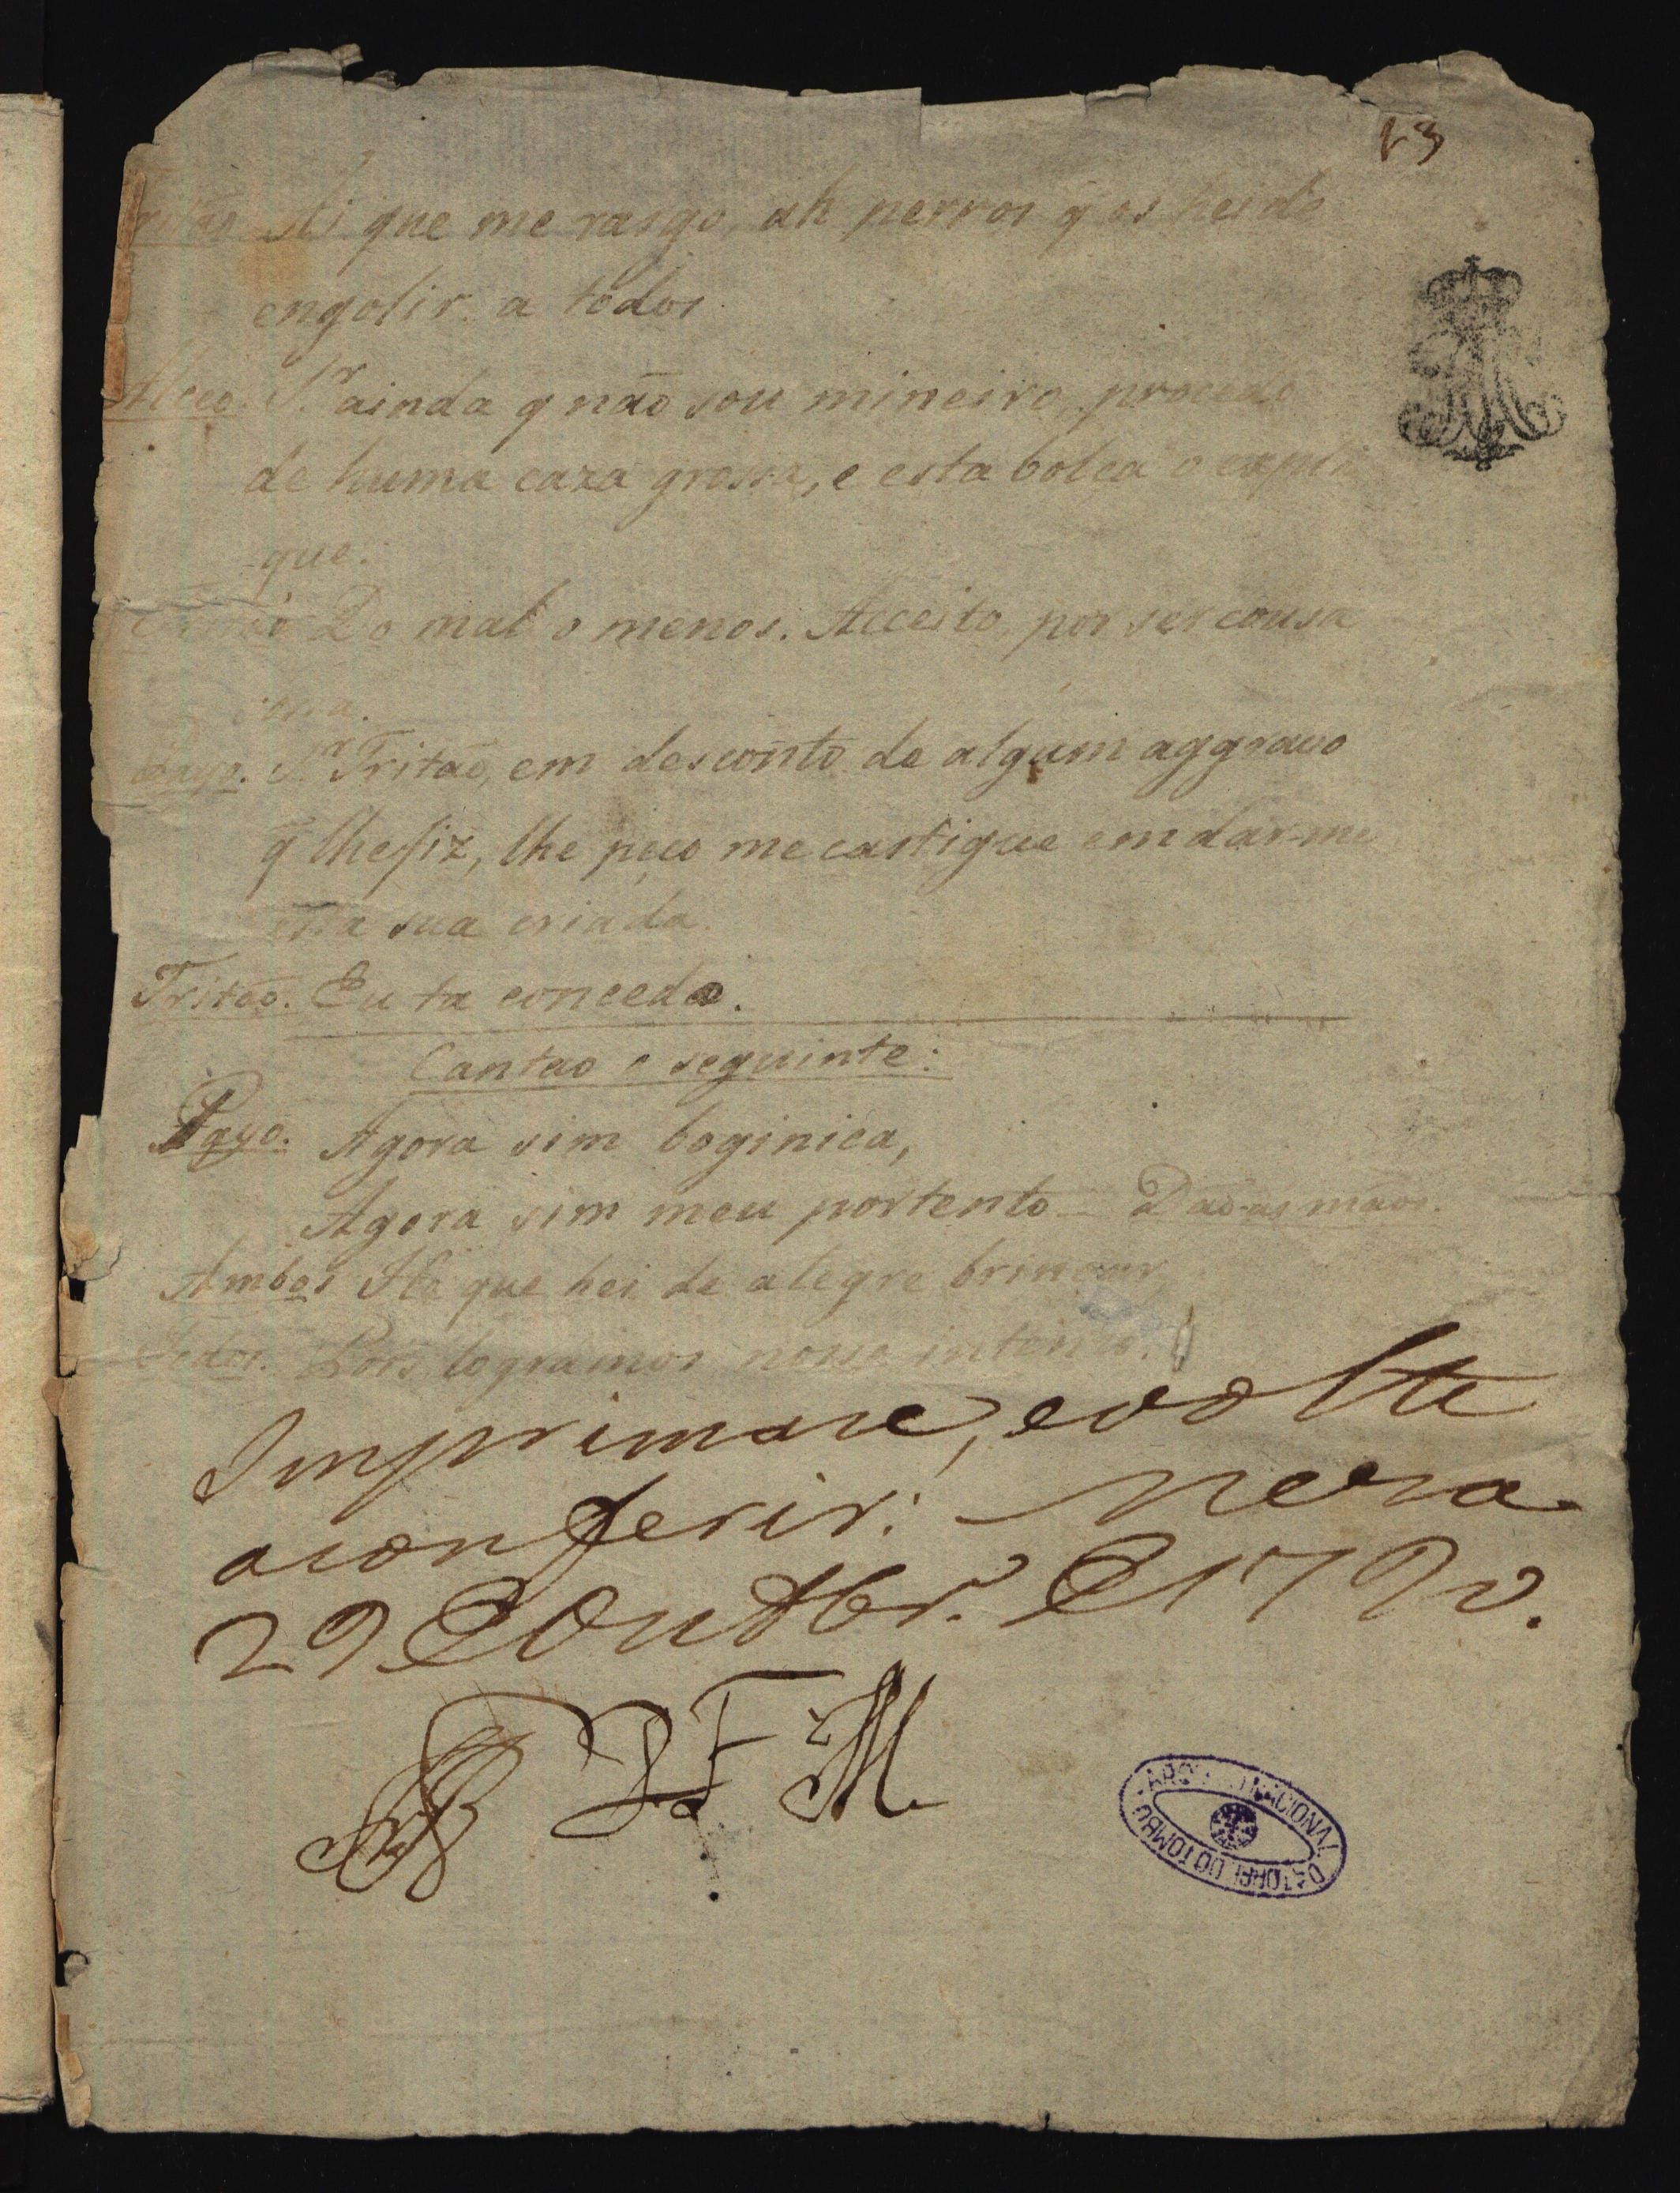 13
Ai que me rasgo, ah perros q̃ os heide
engolir a todos.
Alceo. S.r ainda q não sou mineiro, procedo
de huma caza grossa, e esta bolça o expli
que.
Do mal o menos. Acceito, por ser cousa
Payo. S.r Tritão, em desconto de algum aggravo
q̃ lhe fiz, lhe peço me castigue em dar-me
essa sua criada.
Tritão. Eu ta concedo.
Cantao o seguinte:
Payo. Agora sim boginica,
Agora sim meu portento – Dao-as mãos.
Ambos que hei de alegre brincar,
Todos. Pois logramos nosso intento.
Imprimase, e volte
a conferir. Meza
29 de Outbr.o de 1790.
ARQ NACIONAL DA TORRE DO TOMBO